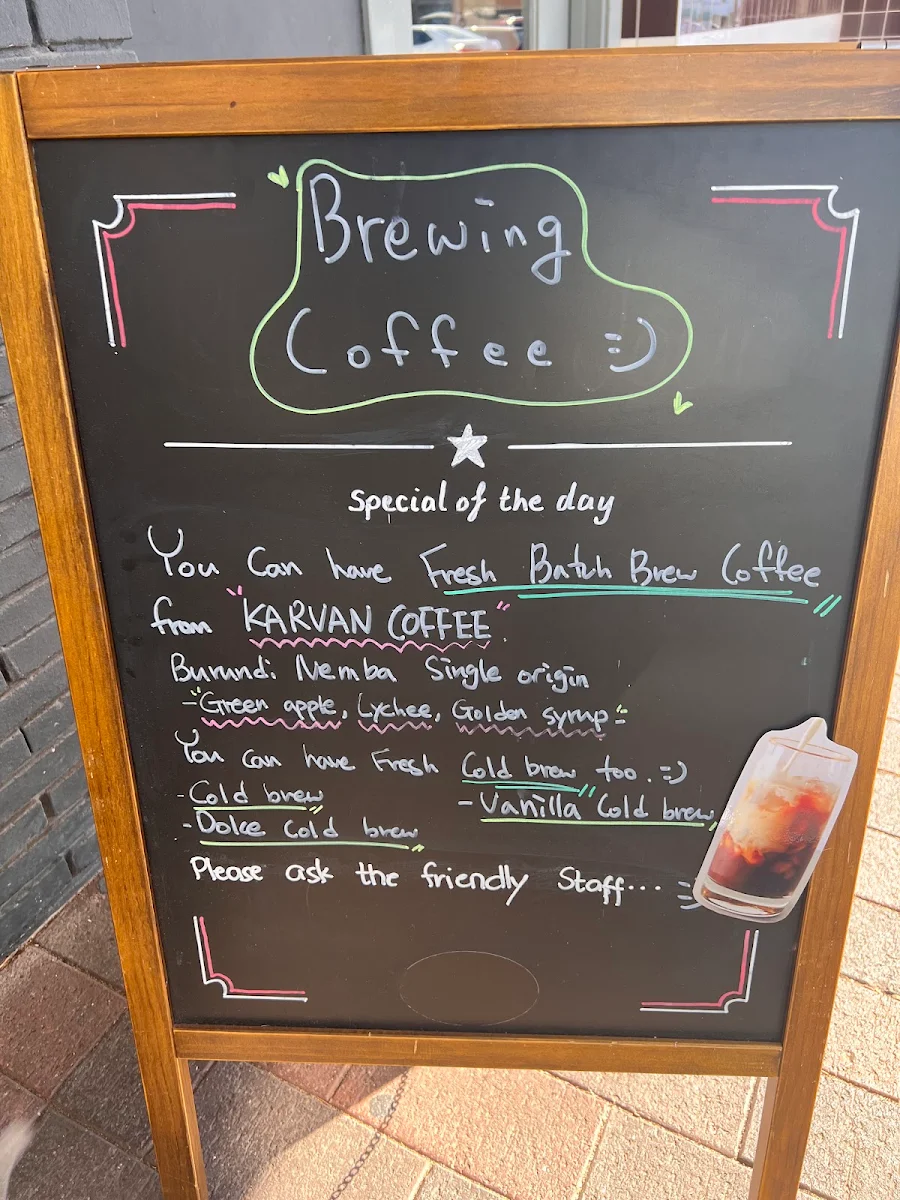 Brewing
Coffee =)
Special of the day
You Can have Fresh Batch Brew Coffee
from "KARVAN COFFEE".
Burundi Nemba Single origin
-"Green apple, Lychee, Golden syrup"-
You can have Fresh Cold brew too. =)
- Cold brew - Vanilla Cold brew
- Dolce Cold brew
Please ask the friendly Staff... =)